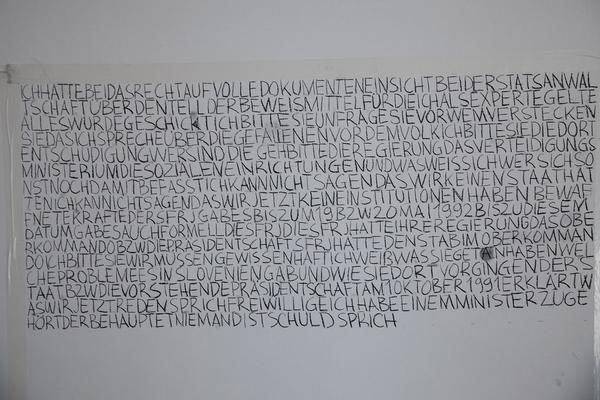 ICHHATTEBEIDASRECHTAUFVOLLEDOKUMENTENEINSICHTBEIDERSTATSANWAL
TSCHAFTÜBERDENTEILDERBEWEISMITTELFÜRDIEICHALSEXPERTEGELTE
ALLESWURDEGESCHICKTICHBITTESIEUNFRAGESIEVORWEMVERSTECKEN
SIEDASICHSPRECHEÜBERDIEGEFALLENENVORDEMVOLKICHBITTESIEDIEDORT
ENTSCHÜDIGUNGWERSINDDIEGEHBITTEDIEREGIERUNGDASVERTEIDIGUNGS
MINISTERIUMDIESOZIALENEINRICHTUNGENUNDWASWEISSICHWERSICHSO
NSTNOCHDAMITBEFASSTICHKANNNICHTSAGENDASWIRKEINENSTAATHAT
TENICHKANNICHTSAGENDASWIRJETZTKEINEINSTITUTIONENHABENBEWAF
FNETEKRAFTEDERSFRJGABESBISZUM19BZW20MAI1992BISZUDIESEM
DATUMGABESAUCHFORMELLDIESFRJDIESFRJHATTEIHREREGIERUNGDASOBE
RKOMMANDOBZWDIEPRÄSIDENTSCHAFTSFRJHATTEDENSTABIMOBERKOMMAN
DOICHBITTESIEWIRMUSSENGEWISSENHAFTICHWEIßWASSIEGETANHABENWEL
CHEPROBLEMEESINSLOVENIENGABUNDWIESIEDORTVORGINGENDERS
TAATBZWDIEVORSTEHENDEPRÄSIDENTSCHAFTAM1OKTOBER1991ERKLÄRTW
ASWIRJETZTREDENSPRICHFREIWILLIGEICHHABEEINEMMINISTERZUGE
HÖRTDERBEHAUPTETNIEMANDISTSCHULDSPRICH